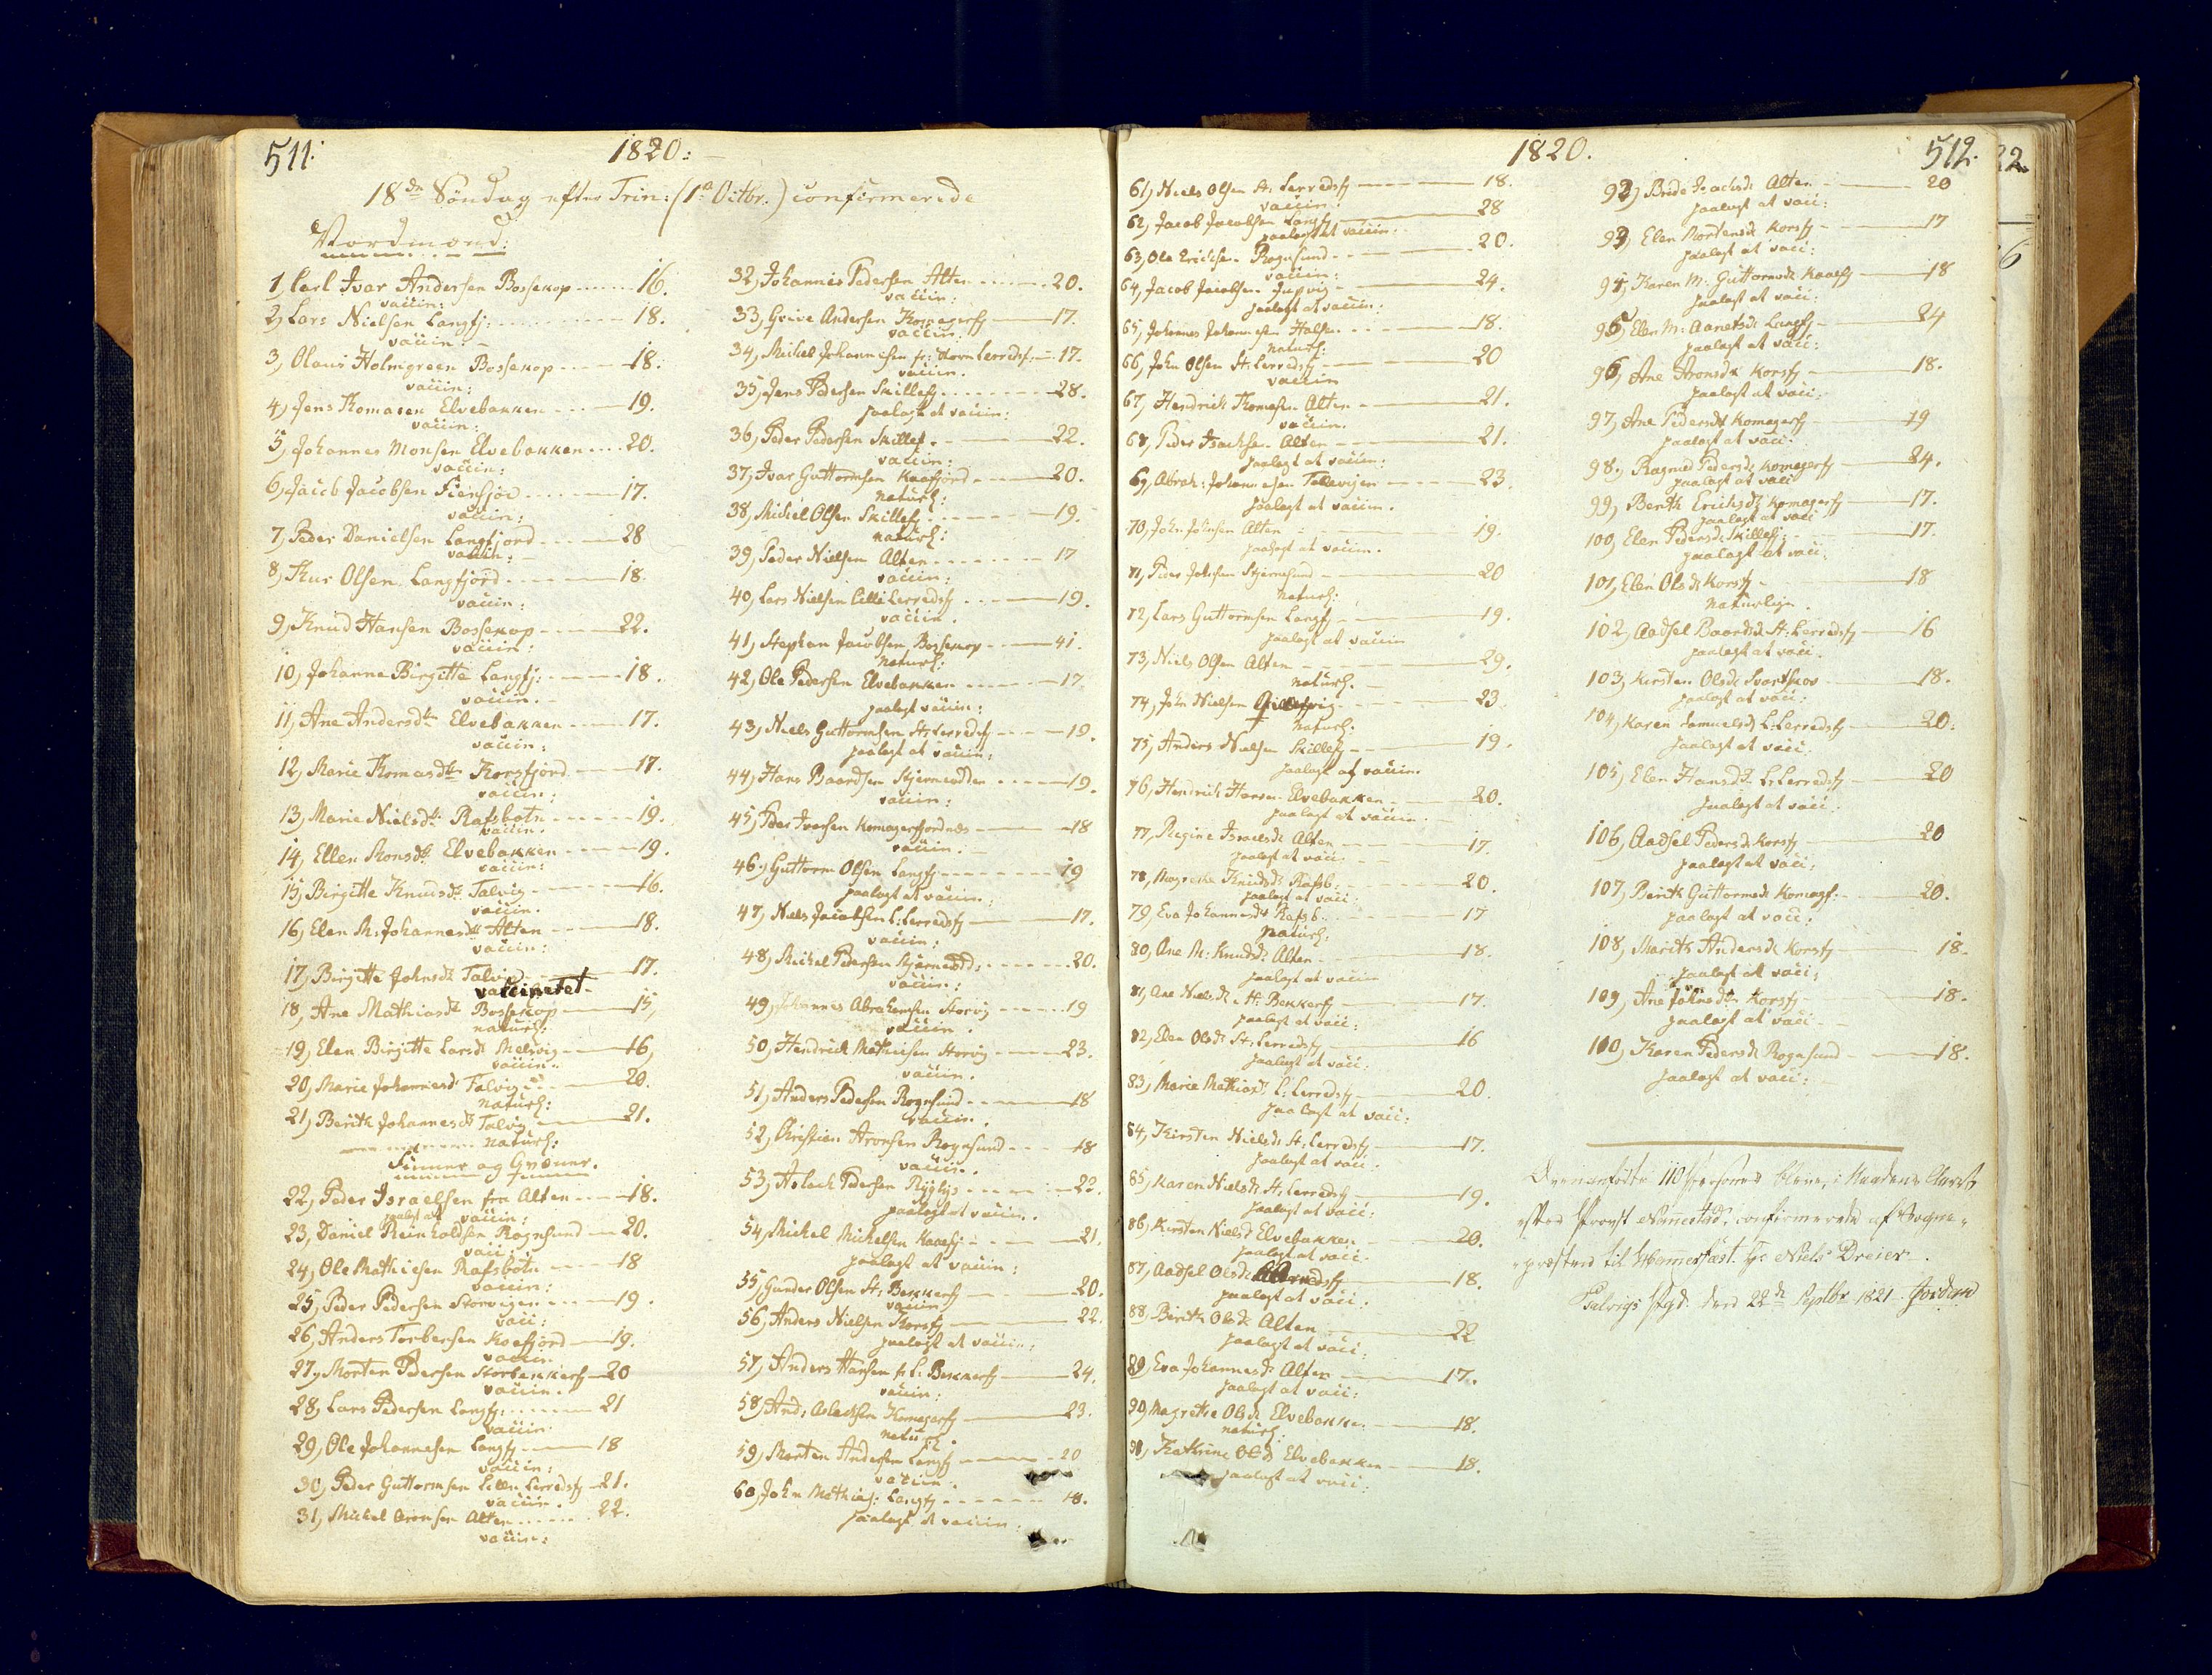 511.
1820:
18de Söndag efter Trin: (1ste Octbr.) confirmerede
Nordmænd:
1, Carl Ivar Andersen Bossekop 16.
vaccin:
2, Lars Nielsen Langfj: 18.
vaccin:
3, Olaus Holmgreen Bossekop 18.
vaccin:
4, Jens Thomasen Elvebakken 19.
vaccin:
5, Johannes Monsen Elvebakken 20.
vaccin:
6, Jacob Jacobsen 17.
vaccin:
7, Peder Danielsen Langfjord 28
vaccin:
8, Thus Olsen Langfjord 18.
vaccin:
9, Knud Hansen Bossekop 22.
vaccin:
10, Johanne Birgitte Langfj: 18.
vaccin.
11, Ane Andersdtr Elvebakken 17.
vaccin:
12, Marie Thomasdtr Korsfjord 17.
vaccin:
13, Marie Nielsdtr Rafsbotn 19.
vaccin.
14, Ellen Monsdtr Elvebakken 19.
vaccin:
15, Birgitte Knudsdr Talvig 16.
vaccin.
16, Elen M. Johannesdtr Alten 18.
vaccin:
17, Birgitte Johnsdr Talvig 17.
vaccinetet
18, Ane Mathiasdr Bossekop 15,
naturl:
19, Elen Birgitte Larsdr Melsvig 16,
vaccin.
20, Marie Johannesdr Talvig 20.
naturl:
21, Berith Johannesdr Talvig 21.
naturl:
Finner og Qvæner.
22, Peder Israelsen fra Alten 18.
paalagt at vaccin:
23, Daniel Reinholdsen Rognsund 20.
vacc:
24, Ole Mathisen Rafsbotn 18
vaccin:
25, Peder Pedersen Storvigen 19.
vacc:
26, Anders Torbersen Koefjord 19.
vaccin
27, Morten Pedersen Storbekkerfj 20
vaccin.
28, Lars Pedersen Langfj: 21
vaccin
29, Ole Johannesen Langfj 18
vaccin:
30, Peder Guttormsen Lille Lerredsfj 21.
vaccin.
31, Michel Aronsen Alten 22.
vaccin:
32, Johannes Pedersen Alten 20.
vaccin:
33, Greive Andersen Komagerfj 17.
vaccin:
34, Michel Johannesen fr: Store Lerredsf: 17.
vaccin.
35, Jens Pedersen Skillefj 28.
paalagt at vaccin:
36, Peder Pedersen Skillef. 22.
vaccin:
37, Ivar Guttormsen Kaafjord 20.
naturl:
38, Michel Olsen Skillefj 19.
naturl:
39, Peder Nielsen Alten 17
vaccin:
40, Lars Nielsen Lille Lerredsfj 19.
vaccin.
41, Stephan Jacobsen Bossekop 41.
naturl:
42, Ole Pedersen Elvebakken 17
paalagt vaccin:
43, Niels Guttormsen St: Lerredsfj 19.
paalagt at vaccin:
44, Hans Baardsen Stjernodden 19.
vaccin:
45, Peder Iversen Komagerfjordnæs 18
vaccin.
46, Guttorm Olsen Langfj 19
paalagt at vaccin:
47, Niels Jacobsen L: Lerredsfj 17.
vaccin:
48, Michel Pedersen Stjernodd: 20.
vaccin:
49, Johannes Abrahamsen Storvig 19
vaccin.
50, Hendrich Mathisen Storvig 23.
vaccin.
51, Anders Pedersen Rognsund 18
vaccin.
52, Christian Aronsen Rognsund 18
vaccin.
53, Aslach Pedersen 22.
paalagt at vaccin.
54, Michel Michelsen Kaaefj: 21.
paalagt at vaccin:
55, Gunder Olsen St: Bekkerfj 20.
vaccin
56, Anders Nielsen Korsfj 22.
paalagt at vaccin:
57, Anders Hansen fr L: Bekkerfj 24.
vaccin:
58, And: Aslachsen Komagerfj 23.
naturl.
59, Morten Andersen Langfj 20
vaccin.
60, John Mathies: Langfj 18.
paalagt at vaccin.
1820.
512.
61, Niels Olsen St. Lerredsfj 18.
vaccin:
62, Jacob Jacobsen Langfj 28
paalagt at vaccin:
63, Ole Erichsen Rognsund 20.
vaccin:
64, Jacob Jacobsen 24.
paalagt at vaccin:
65, Johannes Johannesen 18.
naturl:
66, John Olsen St: Lerredsfj 20
vaccin
67, Hendrich Thomesen Alten 21.
vaccin.
68, Peder Isachsen Alten 21.
paalagt at vaccin:
69, Abrah: Johannesen Tallevigen 23.
paalagt at vaccin.
70, John Johnsen Alten 19.
paalagt at vaccin.
71, Peder Johnsen Stjernesund 20
naturl:
72, Lars Guttormsen Langfj 19.
paalagt at vaccin
73, Niels Olsen Alten 29.
naturl.
74, John Nielsen 23.
naturl.
75, Anders Nielsen Skillefj 19.
paalagt at vaccin.
76, Hendrich Hansen Elvebakken 20.
paalagt at vaccin
77, Regine Israelsdr Alten 17
paalagt at vacc:
78, Magrethe Knudsdr Rafsb: 20.
paalagt at vacc:
79, Eva Johannesdtr Rafsb: 17
naturl:
80, Ane M: Knudsdr Alten 18.
paalagt at vaccin
81, Ane Nielsdr St: Bekkerfj 17.
paalagt at vacc:
82, Elen Olsdr St: Lerredsfj 16
paalagt at vacc:
83, Marie Mathiasdr L: Lerredsfj 20.
paalagt at vacc:
84, Kirsten Nielsdr St: Lerredsfj 17.
paalagt at vacc:
85, Karen Nielsdr St: Lerredsfj 19.
paalagt at vacc:
86, Kirsten Nielsd Elvebakken 20.
paalagt at vacc.
87, Aadsel Olsdr 18.
paalagt at vacc:
88, Berith Olsdr Alten 22
paalagt at vacc:
89, Eva Johannesdr Alten 17.
paalagt at vacc:
90, Magrethe Olsdr Elvebakken 18.
naturl:
91, Kathrine Olsd Elvebakken 18.
paalagt at vacc:
92, Brede Isachsdr Alten 20
paalagt at vacc:
93, Elen Mortensdr Korsfj 17
paalagt at vacc:
94, Karen M: Guttormsdr Kaaefj 18
paalagt at vacc:
95, Elen M: Aanetsdr Langfj 24
paalagt at vacc:
96, Ane Aronsdr Korsfj 18.
paalagt at vacc:
97, Ane Pedersdr Komagerfj 19
paalagt at vacc:
98, Ragned Pedersdr Komagerfj 24.
paalagt at vacc
99, Berith Erichsdr Komagerfj 17.
paalagt at vacc
100, Elen Pedersdr Skillefj: 17.
paalagt at vacc:
101, Elen Olsdr Korsfj 18
naturlige.
102, Aadsel Baardsdr St: Lerredsfj 16
paalagt at vacc.
103, Kirsten Olsdr 18.
paalagt at vacc:
104, Karen Samuelsdr L: Lerredsfj 20:
paalagt at vacc.
105, Elen Hansdr L: Lerredsfj 20
paalagt at vacc.
106, Aadsel Pedersdr Korsfj 20
paalagt at vacc:
107, Berith Guttormsdr Komagf: 20.
paalagt at vacc:
108, Marith Andersdr Korsfj 18.
paalagt at vacc:
109, Ane Johnsdtr Korsfj 18.
paalagt at vacc
110, Karen Pedersdr Rognsund 18.
paalagt at vacc:
Ovenanførte 110 Personer bleve, i Naadens Aaret
efter Provst confirmerede af Sogne-
-præsten til Hamerfæst Hr: Niels Dreier.
Talvigs Pgd. den 22de Septbr 1821. Jordan